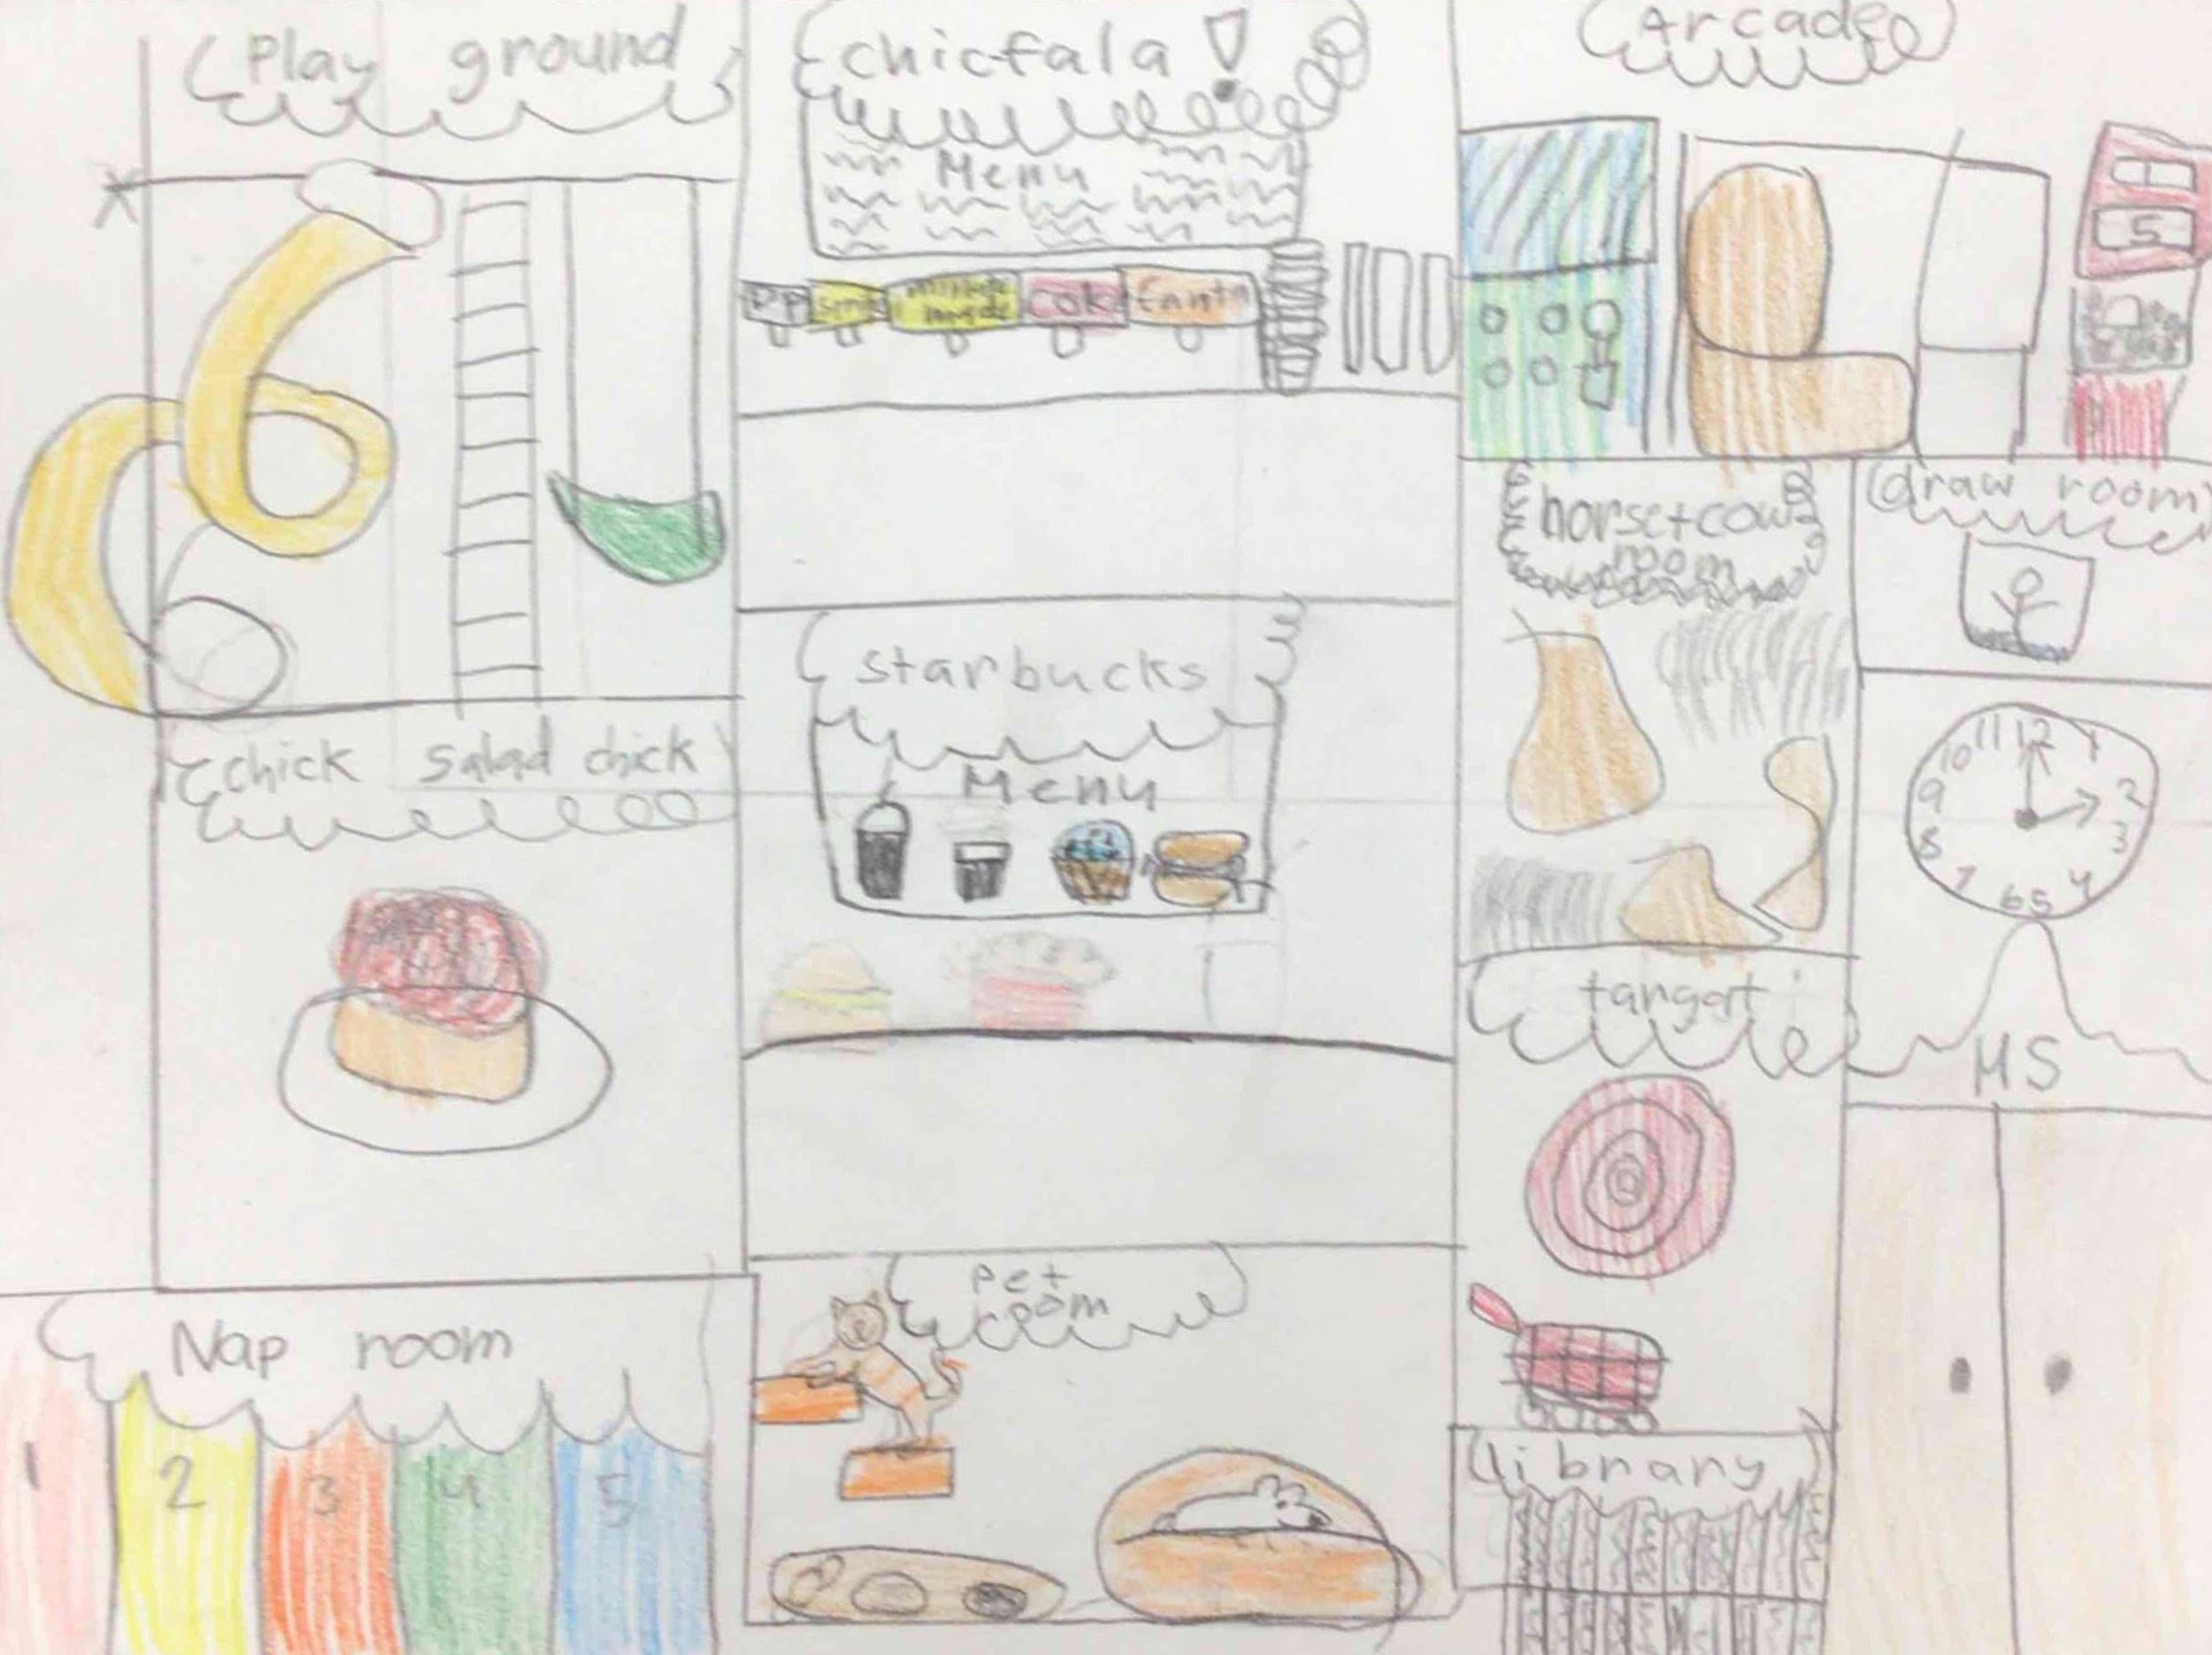 Play ground
chicfala!
Menu
DP
coke
fanta
Arcade
5
horse+cow
room
draw room
starbucks
Menu
chick salad chick
11 12 1
10 2
9 3
8 4
7 6 5
tangart
MS
Nap room
1 2 3 4 5
pet
room
library